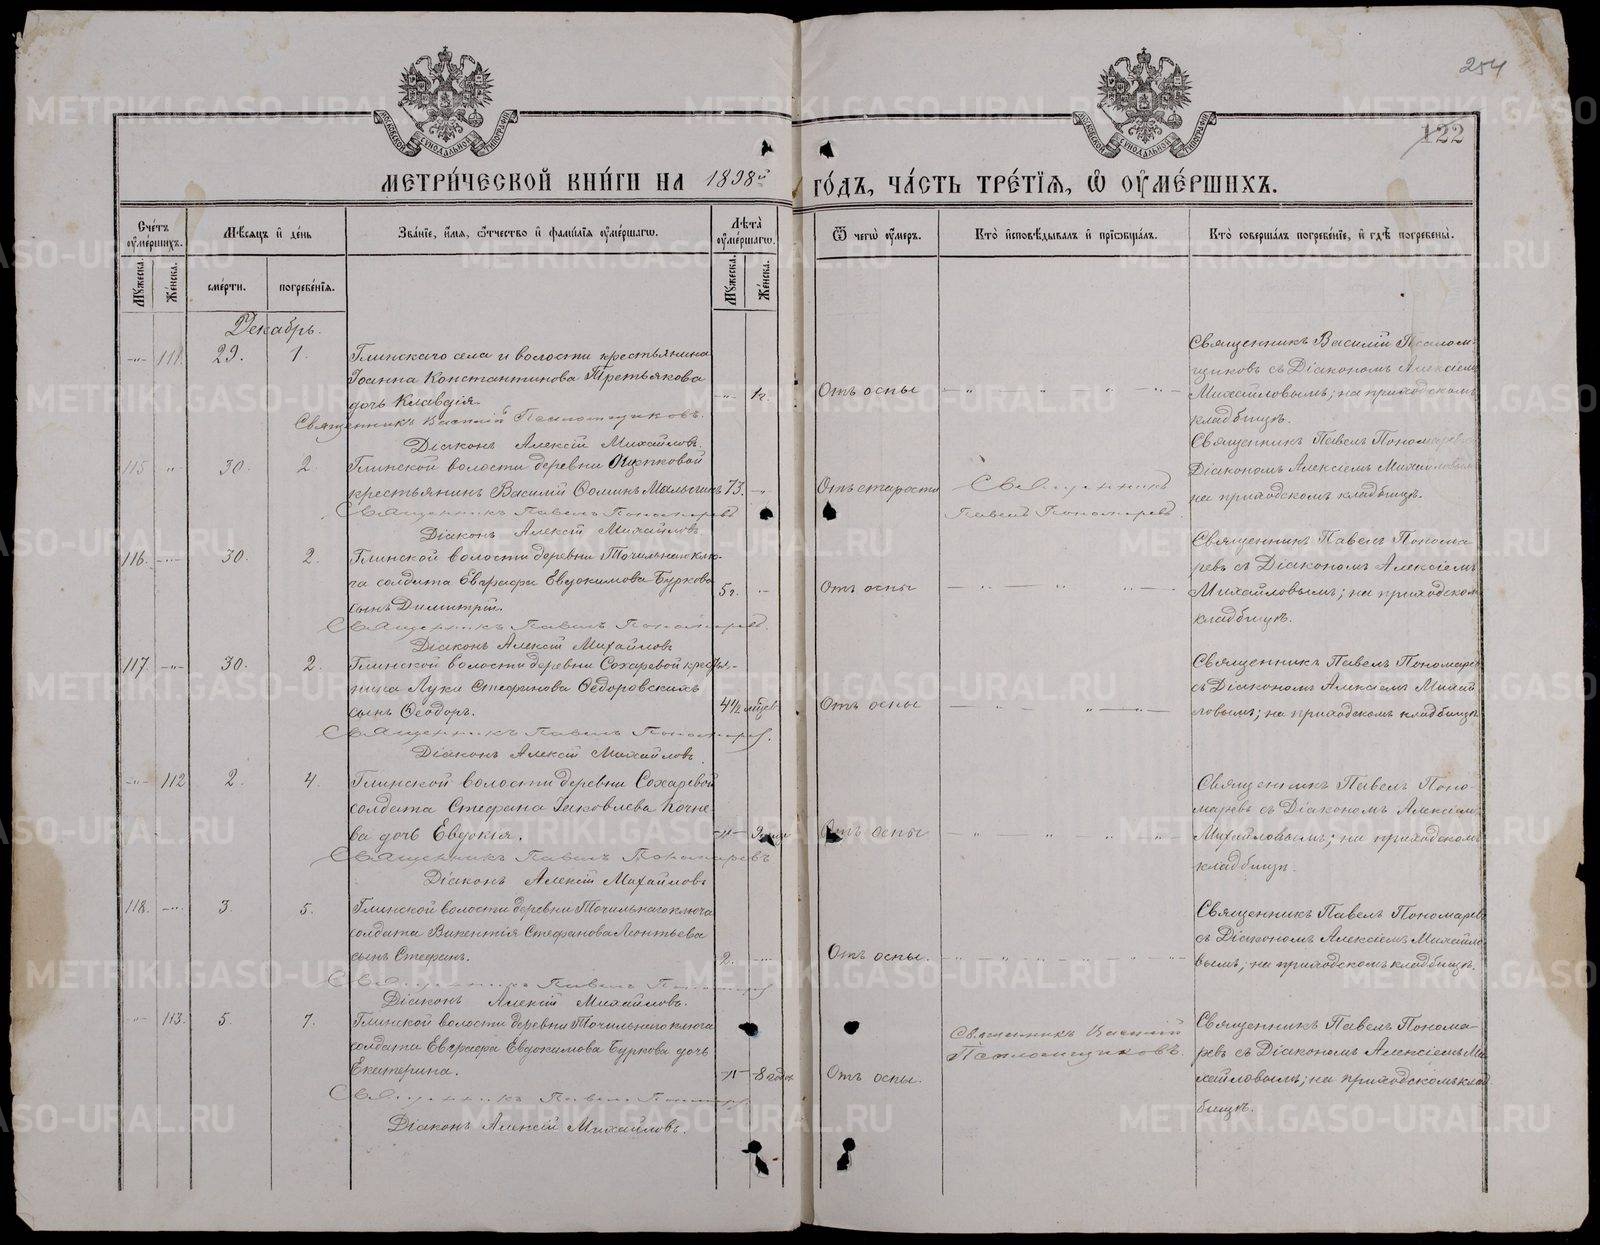 254
122
МОСКОВСКОЙ СѴНОДАЛЬНОЙ ТИПОГРАФІИ
МОСКОВСКОЙ СѴНОДАЛЬНОЙ ТИПОГРАФІИ
МЕТРИ́ЧЕСКОЙ КНИ́ГИ НА 1898й ГО́ДЪ, ЧА́СТЬ ТРЕ́ТІЯ, Ѡ ОУМЕ́РШИХЪ.
Сче́тъ оуме́ршихъ.
Мужеска.
Же́нска.
Мѣ́сяцъ и де́нь
сме́рти.
погребе́нїя.
Зва́нїе, и́мя, ѻ́тчество и фами́лїя оуме́ршагѡ.
Лѣ́та оуме́ршагѡ.
Мужеска.
Же́нска.
Ѿ чегѡ̀ оу́меръ.
Кто̀ исповѣ́дывалъ и прїѡбща́лъ.
Кто̀ соверша́лъ погребе́нїе, и гдѣ̀ погребены̀.
Декабрь.
-"- 111. 29. 1. Глинскаго села и волости крестьянина
Іоанна Константинова Третьякова
дочь Клавдія. -"- 1г. Отъ оспы - " - " - " -
Священникъ Василій Псаломщиковъ.
Діаконъ Алексій Михайловъ.
Священникъ Василій Псалом-
щиковъ съ Діакономъ Алексіемъ
Михайловымъ; на приходскомъ
кладбищѣ.
115 " 30. 2. Глинской волости деревни Ощепковой
крестьянинъ Василій Ѳоминъ Малыгинъ 73. " Отъ старости Священникъ
Павелъ Пономаревъ.
Священникъ Павелъ Пономаревъ
Діаконъ Алексій Михайловъ.
Священникъ Павелъ Пономаревъ съ
Діакономъ Алексіемъ Михайловымъ
на приходскомъ кладбищѣ.
116. -"- 30. 2. Глинской волости деревни Точильнаго клю-
ча солдата Евграфа Евдокимова Буркова
сынъ Димитрій. 5г. " Отъ оспы - " - " - " -
Священникъ Павелъ Пономаревъ.
Діаконъ Алексій Михайловъ
Священникъ Павелъ Понома
ревъ съ Діакономъ Алексіемъ
Михайловымъ; на приходском
кладбищѣ.
117. -"- 30. 2. Глинской волости деревни Сохаревой крестья-
нина Луки Стефанова Ѳедоровскихъ
сынъ Ѳеодоръ. 4½ мѣсев Отъ оспы - " - " - " -
Священникъ Павелъ Пономарев.
Діаконъ Алексій Михайловъ
Священникъ Павелъ Пономаре
съ Діакономъ Алексіемъ Михай
ловымъ; на приходскомъ кладбищѣ
-"- 112 2. 4. Глинской волости деревни Сохаревой
солдата Стефана Іаковлева Почне-
ва дочь Евдокія. -"- Отъ оспы - " - " - " -
Священникъ Павелъ Пономаревъ
Діаконъ Алексій Михайловъ
Священникъ Павелъ Поно-
маревъ съ Діакономъ Алексіемъ
Михайловымъ; на приходскомъ
кладбищѣ.
118. -"- 3. 5. Глинской волости деревни Точильнаго ключа
солдата Викентія Стефанова Леонтьева
сынъ Стефанъ. 2. " Отъ оспы. - " - " - " -
Священникъ Павелъ Пономарев
Діаконъ Алексій Михайловъ.
Священникъ Павелъ Пономаревъ
съ Діакономъ Алексіемъ Михайло
вымъ; на приходскомъ кладбищѣ.
-"- 113. 5. 7. Глинской волости деревни Точильнаго ключа
солдата Евграфа Евдокимова Буркова дочь
Екатерина. -"- 8 годов Отъ оспы. Священникъ Василій
Псаломщиковъ.
Священникъ Павелъ Пономарев
Діаконъ Алексій Михайловъ.
Священникъ Павелъ Понома-
ревъ съ Діакономъ Алексіемъ Ми
хайловымъ; на приходскомъ клад
бищѣ.
METRIKI.GASO-URAL.RU